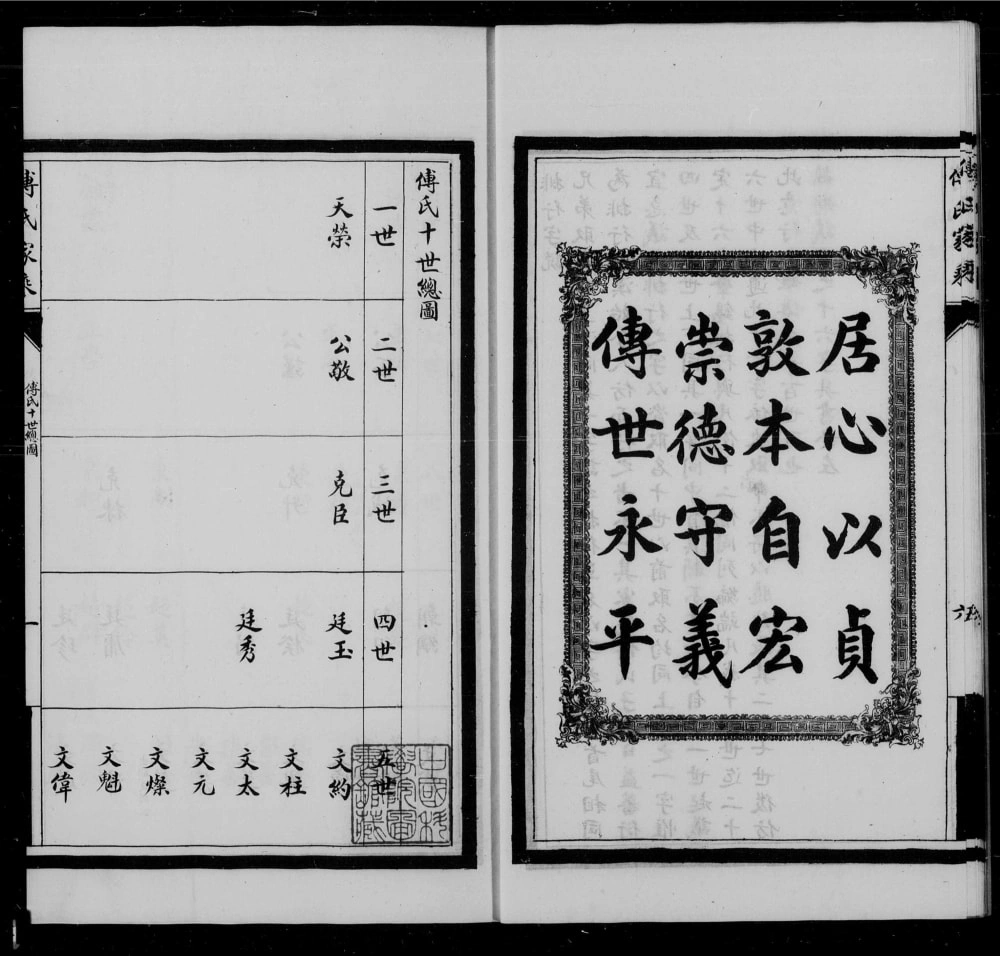 居心以貞
敦本自宏
崇德守義
傳世永平
傅氏十世總圖
一世
二世
三世
四世
五世
天榮
公敬
克臣
廷玉
文約
文柱
廷秀
文太
文元
文燦
文魁
文偉
傅氏家乘
傅氏十世總圖
一